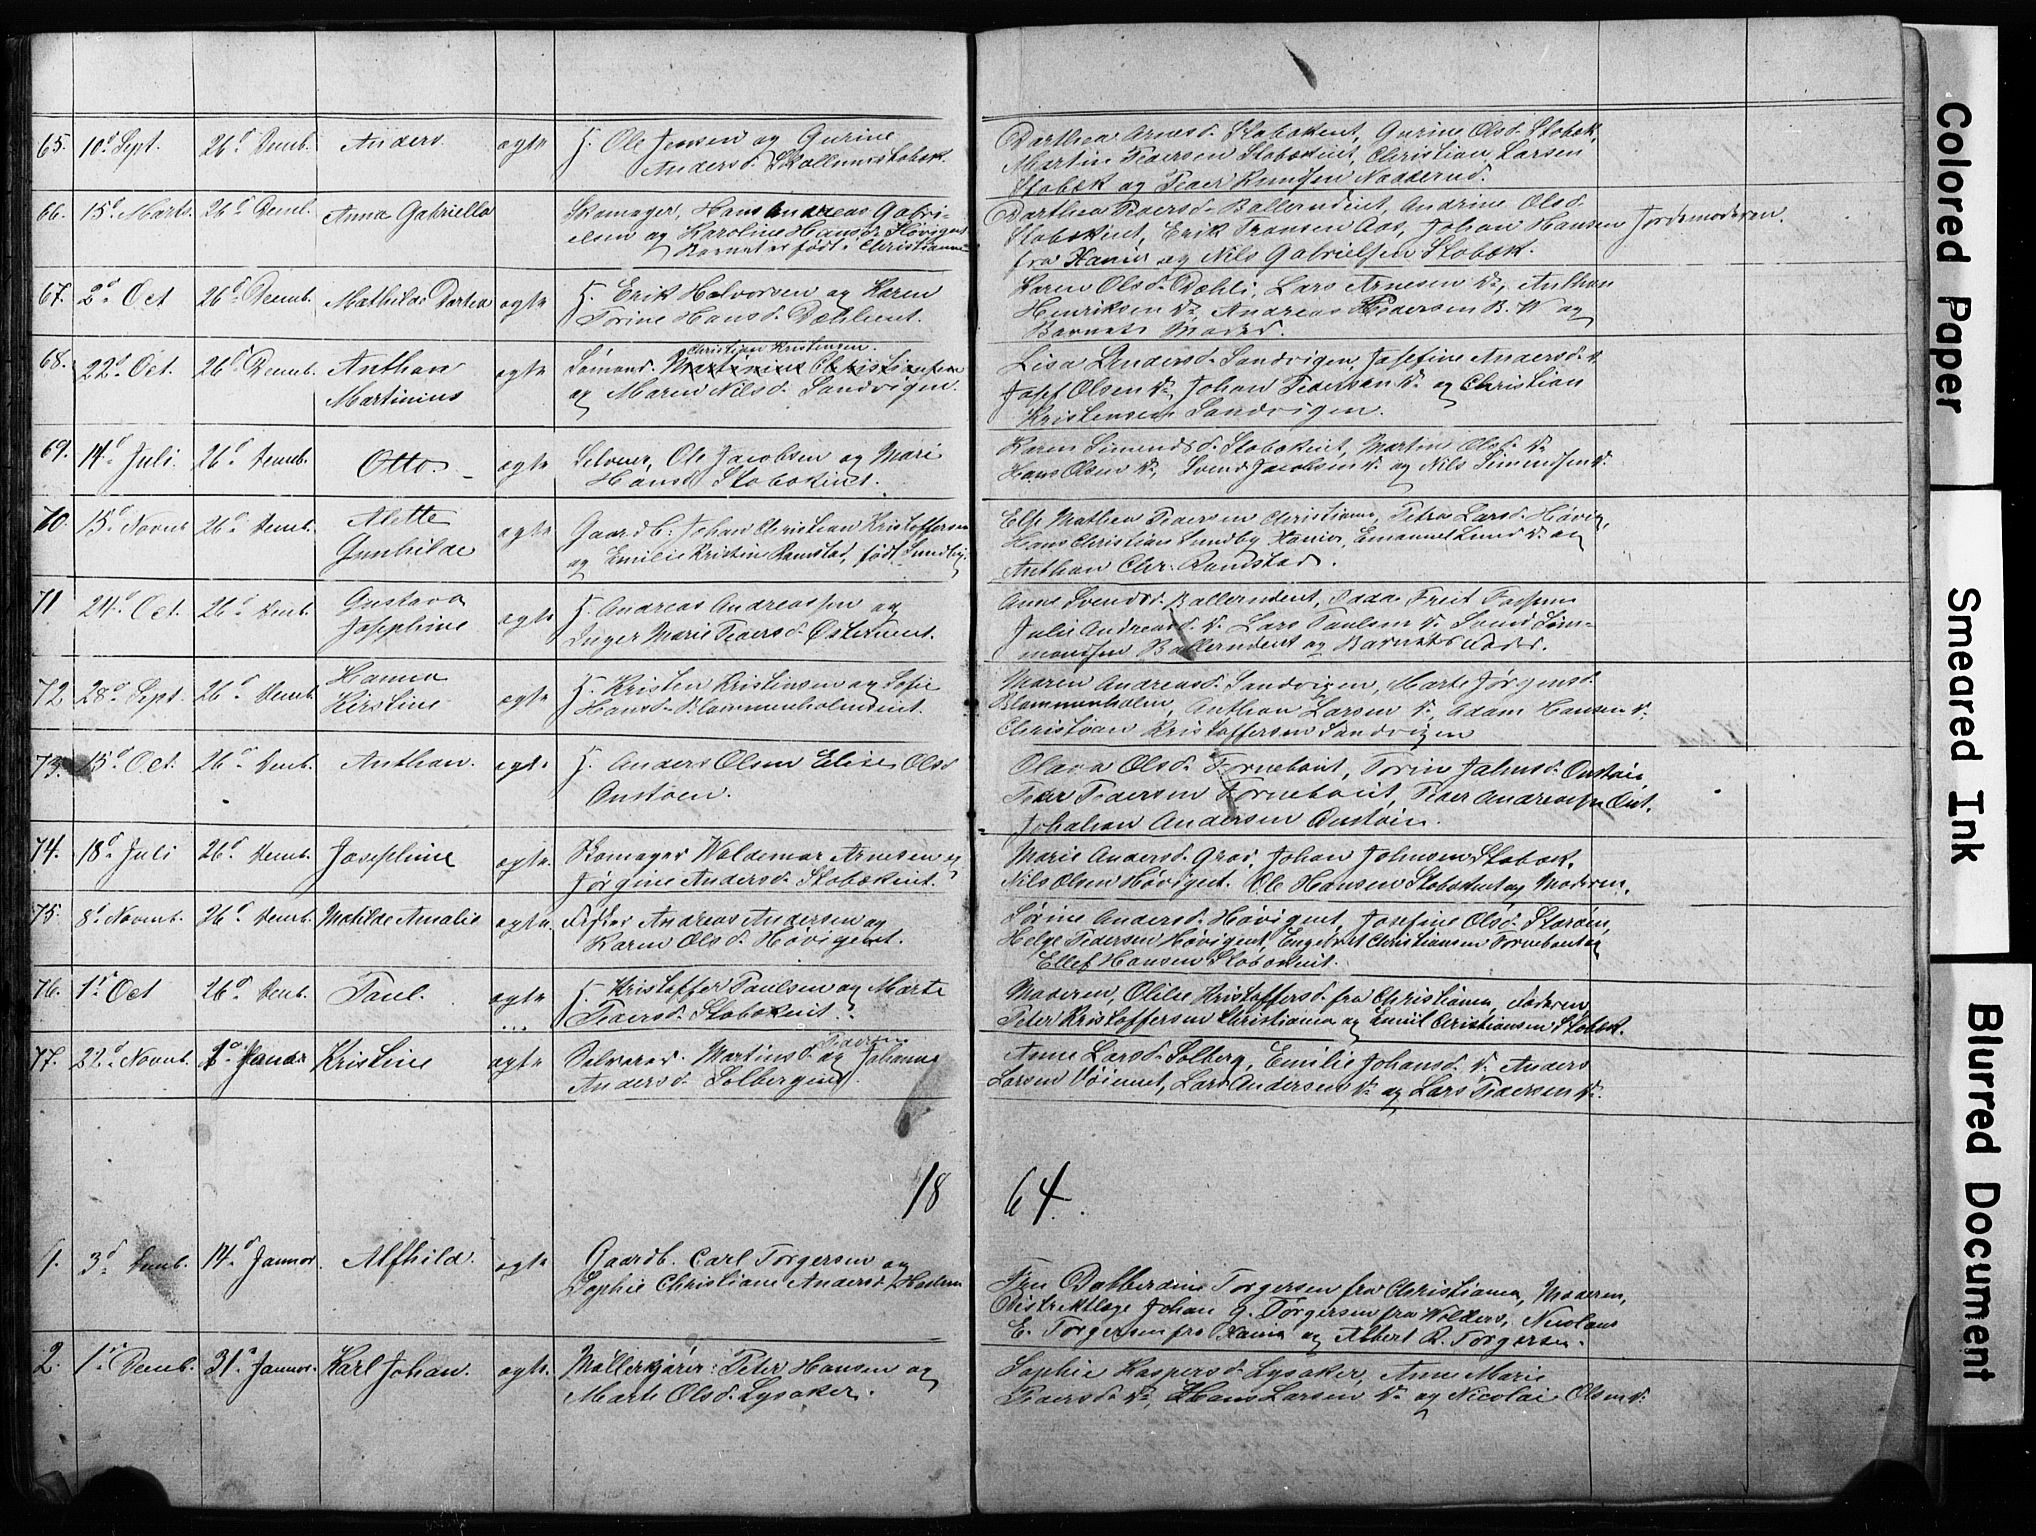 65. 10d Sept. 26d Decemb. Anders ægte J. Ole Jensen og Gurine
Andersd. Skallumstabek
Barthea Arnesd. Stabækeiet, Gurine Olsd. Stabek,
Martin Pedersen Stabækeiet, Christian Larsen
Stabæk og Peder Knudsen Nadderud.
66. 15d Marts. 26d Decmb. Anna Gabriella Skomager, Hans Andreas Gabri-
elsen og Karoline Hansd. Høvigeiet
Barnet er født i Christiania
Barthea Pedersd. Ballerudeiet, Andrine Olsd.
Stabækeiet, Erik Fransen Aas, Johan Hansen Jordemoderen.
fra Xania og Nils Gabrielsen Stabæk.
67. 2d Oct 26d Decemb. Mathilde Dortea ægte J. Erik Halvorsen og Karen
Torine Hansd. Dæhlieiet.
Karen Olsd. Dæhli, Lars Arnesen do, Anthon
Henriksen do, Andreas Pedersen B. V og
Barnets Moder.
68. 22d Oct. 26d Decemb. Anthon ægte Sømand. Martinius Christiansen
Christian Kristensen.
Martinius og Maren Nilsd. Sandvigen.
Lisa Andersd. Sandvigen, Josefine Andersd. do
Josef Olsen do, Johan Pedersen do og Christian
Kristensen Sandvigen.
69. 14d Juli. 26d Decmb. Otto ægte Selveier, Ole Jacobsen og Mari
Hansd Stabækeiet.
Karen Simensd. Stabækeiet, Martin Olsd. do
Hans Olsen do, Svend Jacobsen do og Nils Simensen do.
70. 15d Novmb 26d Decmb. Alette ægte Gaardb. Johan Christian Kristoffersen
Gunhilde og Emilie Kristin Ramstad, født Sundby.
Else Mathea Pedersen Christiania, Petra Larsd. Høvig,
Hans Christian Sundby Xania, Emanuel Lund do og
Anthon Chr. Ramstad.
71 24d Oct. 26d Decmb. Gustava ægte J. Andreas Andreassen og
Josephine Inger Marie Pedersd. Østerneiet.
Anne Svendsd. Ballerudeiet,
Julie Andreasd. do Lars Paulsen do Svend Sim-
mensen Ballerudeiet og Barnets Moder.
72 28d Sept. 26d Decmb. Hanna ægte J. Kristen Kristensen og Sofie
Kirstine Hansd. Blommenholmeiet.
Maren Andreasd. Sandvigen, Marte Jørgensd.
Blommenholm, Anthon Larsen do, Adam Hansen do.
Christian Kristoffersen Sandvigen
73. 15d Oct. 26d Decmb. Anthon. ægte J. Anders Olsen Elise Olsd
Onstøen.
Olava Olsd. Forneboeiet, Torin Johnsd. Onstøen
Peder Pedersen Forneboeiet, Peder Andreassen Onst.
Johan Andersen Onstøen.
74. 18d Juli 26d Decmb. Josephine ægte. Skomager Waldemar Arnesen og
Jørgine Andersd. Stabækeiet.
Marie Andersd. Grav, Johan Johnsen Stabæk.
Nils Olsen Høvigeiet. Ole Hansen Stabækeiet og Moderen.
75. 8d Novemb. 26d Decmb. Matilde Amalie ægte. Fisker Andreas Andersen og
Karen Olsd. Høvigeiet.
Sørine Andersd. Høvigeiet, Josefine Olsd. Storøen,
Helge Pedersen Høvigeiet, Engebret Christiansen Forneboeiet og
Ellef Hansen Stabækeiet.
76. 1d Oct 26d Decmb. Paul. ægte J. Kristoffer Paulsen og Marte
... Pedersd. Stabækeiet.
Moderen, Olilie Kristoffersd. fra Christiania, Faderen,
Peter Kristoffersen Christiania og Emiil Christiansen Stabæk.
77. 22d Novmb. 1d Januar Kristine ægte Selveier. Martinsd. og Johanne
Pedersen
Andersd. Solbergeiet.
Anne Larsd. Solberg, Emilie Johansd. do Anders
Larsen Vøieneiet, Lars Andersen do og Lars Pedersen do.
18 64.
1. 3d Decmb. 14d Januar. Alfhild. ægte Gaardb. Carl Torgersen og
Sophie Christiane Andersd. Haslum
Fru Dalberdine Torgersen fra Christiania, Moderen,
Distriktlæge Johan G. Torgersen fra Valders, Nicolaus
E. Torgersen fra Xania og Albert R. Torgersen.
2. 1d Decmb. 31d Januar. Karl Johan. ægte. Møllerkjører: Peter Hansen og
Marte Olsd. Lysaker.
Sophie Kaspersd. Lysaker, Anne Marie
Pedersd. do, Hans Larsen do og Nicolai Olsen do.
Colored Paper
Smeared Ink
Blurred Document